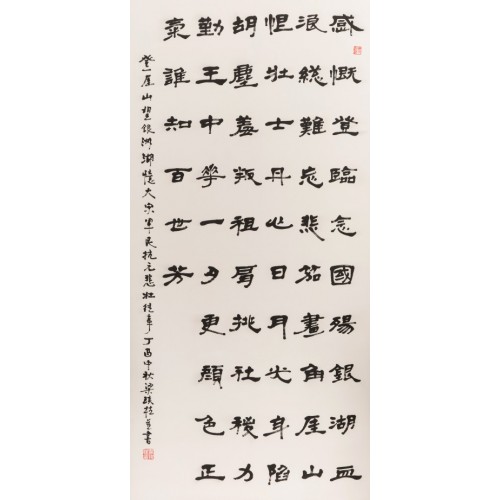 感慨登臨念國殤銀湖血
浪總難忘悲笳畫角厓山
怛壯士丹心日月光身陷
胡塵羞叛祖肩挑社稷力
勤王中華一夕更顏色正
誰知百世芳
登厓山望銀洲湖憶大宋軍民抗元悲壯往事丁酉中秋梁書